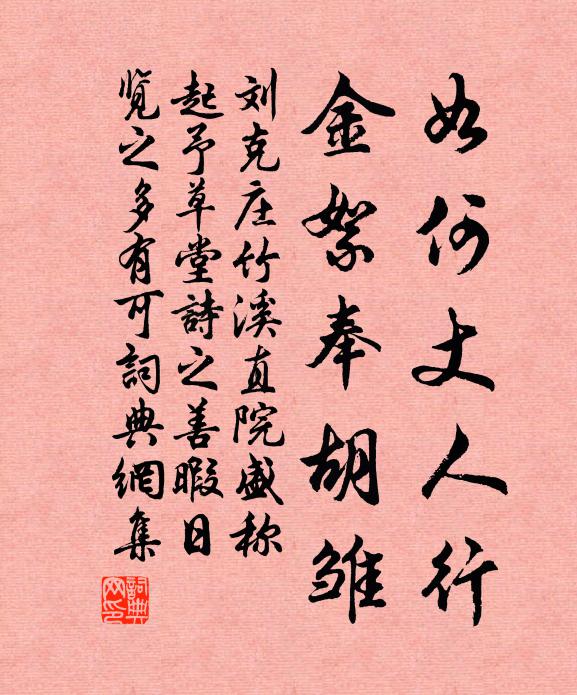 如何丈人行
金絮奉胡雏
刘克庄竹溪直院盛称
起予草堂詩之善暇日
览之多有可詞典網集
詞典网印